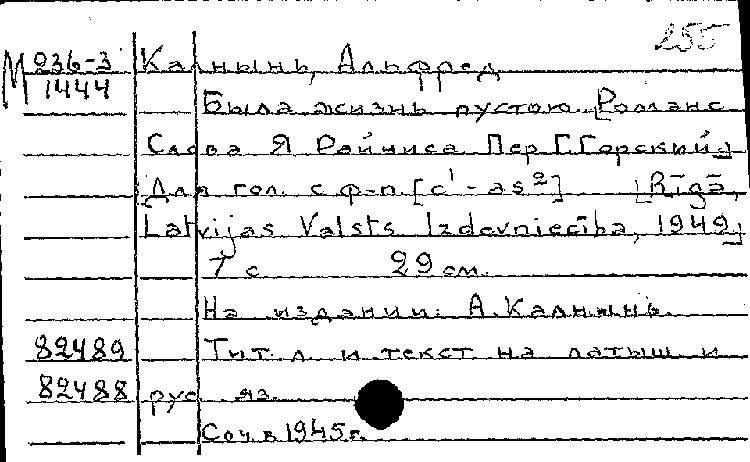 255
М 936-3 Калнынь, Альфред
1444
Была жизнь пустою. [Романс
Слова Я Райниса Пер Г.Горский]
Для гол. с ф-п [c¹ - as²] [Rīgā,
Latvijas Valsts Izdevniecība, 1949]
7 с 29 см.
На издании: А.Калнынь.
82489 Тит. л и текст на латыш и
82488 рус яз.
Соч. в 1945 г.